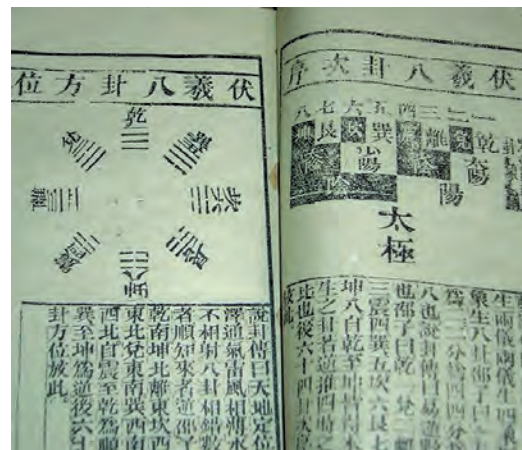 伏羲八卦次序
一二三四五六七八
乾兌離震巽坎艮坤
太陽
少陽
陽
太極
生兩儀兩儀生四
象生八卦邵子曰一分
為二二分為四四分
八也說卦傳曰易逆數
也邵子曰乾一兌二離
三震四巽五坎六艮七
坤八自乾至坤皆得未
生之卦若逆推四時之
比也後六十四卦次序
放此
伏羲八卦方位
乾
兌
離
震
巽
坎
艮
坤
說卦傳曰天地定位
澤通氣雷風相薄水
不相射八卦相錯數
者順知來者逆邵子
乾南坤北離東坎西
東北兌東南巽西南
西北自震至乾為順
巽至坤為逆後六十
卦方位放此